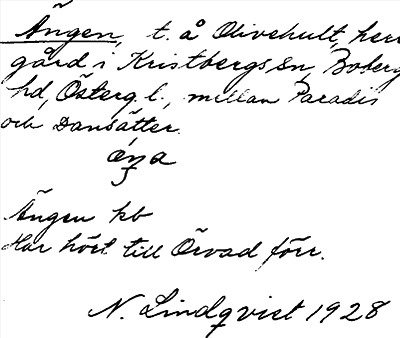 Ängen, t. å Olivehult, herr
gård i Kristbergs sn, Boberg
hd, Österg. l., mellan Paradis
och Dansätter.
äŋa
Ängen hb
Har hört till Örvad förr.
N. Lindqvist 1928